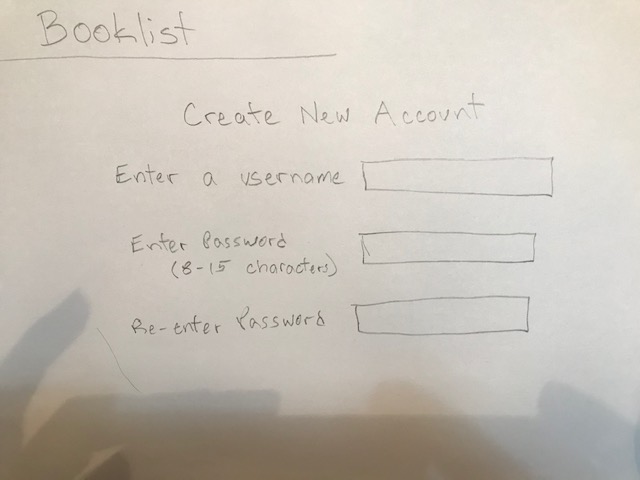 Booklist
Create New Account
Enter a username
Enter Password
(8-15 characters)
Re-enter Password